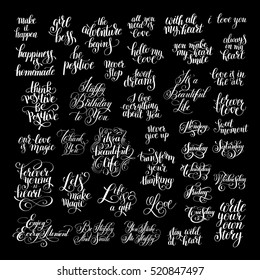 make it
happen
girl
boss
the
adventure
begins
all you
need is
love
with all
my heart
i love you
happiness
is
homemade
be
positive
never
stop
hello my
love
you make
my heart
smile
always
in my
heart
think
positive
be
positive
Happy
Birthday
to You
sweet
dreams
i love
everything
about you
it's a
Beautiful
Life
love is in
the air
forever
our love
is
magic
Thank
You
it's a
beautiful
life
never
give
up
Monday
Tuesday
sweet
moment
Saturday
forever
in my
heart
Let's
make
Magic
transform
your
thinking
Wednesday
Sunday
Life
is
a gift
Love
Thursday
Friday
write
your
own
story
Enjoy
Every Moment
Be Happy
And Smile
stay wild
at heart
520847497